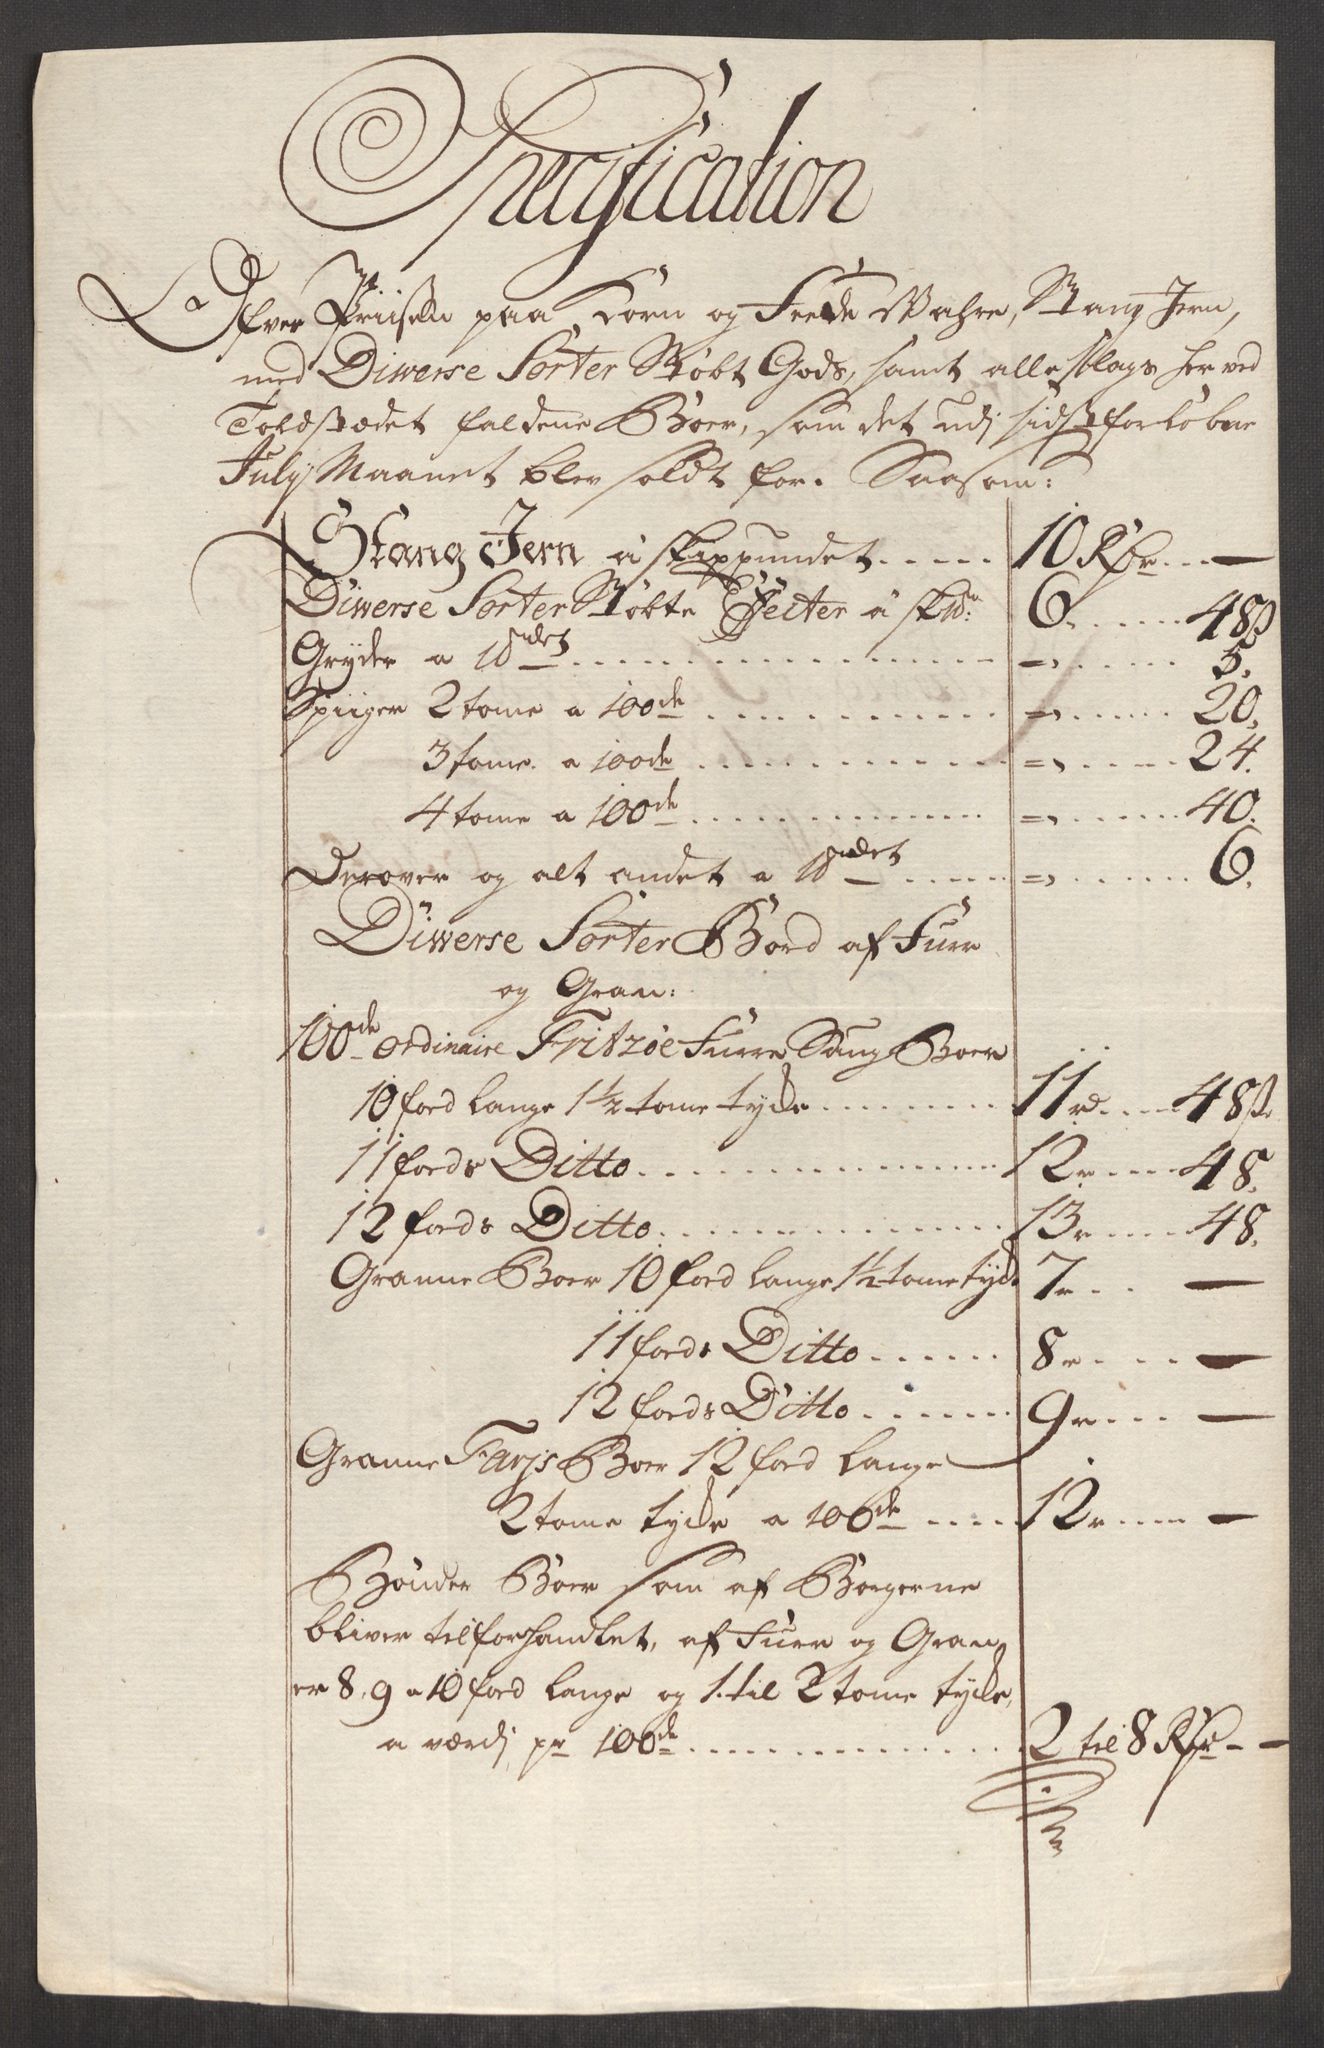 Specification
Ofver Priisen paa Korn og Feede Wahre, Stang Jern,
med Diverse Sorter Støbt Gods, samt alle slags her ved
Toldstædet faldene Boer, som det udj sidst forløbne
July Maanet blev soldt for. Saasom:
Stang Jern á skippundet ..... 10 Rdr ... —
Diverse Sorter Støbte Effecter á sk℔: 6 ..... 48 ß
Gryder a 1 ℔det ..... = ..... 5.
Spiiger 2 tome a 100de ..... = ..... 20.
3 tome a 100de ..... = ..... 24.
4 tome a 100de ..... = ..... 40.
Derover og alt andet a 1 ℔det ..... = ..... 6.
Diverse Sorter Bord af Furr
og Gran:
100de ordinaire Fritzøe Furre Saug Boer
10 foed lange 1½ tome tycke ..... 11 rd .... 48 ß.
11 foeds Ditto ..... 12 r .... 48.
12 foeds Ditto ..... 13 r .... 48.
Granne Boer 10 foed lange 1½ tome tycke 7 r ... —
11 foeds Ditto ..... 8 r .... —
12 foeds Ditto ..... 9 r .... —
Granne Farjs Boer 12 foed lange
2 tome tycke a 100de .... 12 r .... —
Bønder Boer som af Borgerne
bliver tilforhandlet, af Furr og Gran
er 8, 9 a 10 foed lange og 1. til 2 tome tycke,
a værdj pr 100de ..... 2 til 8 Rdr - -